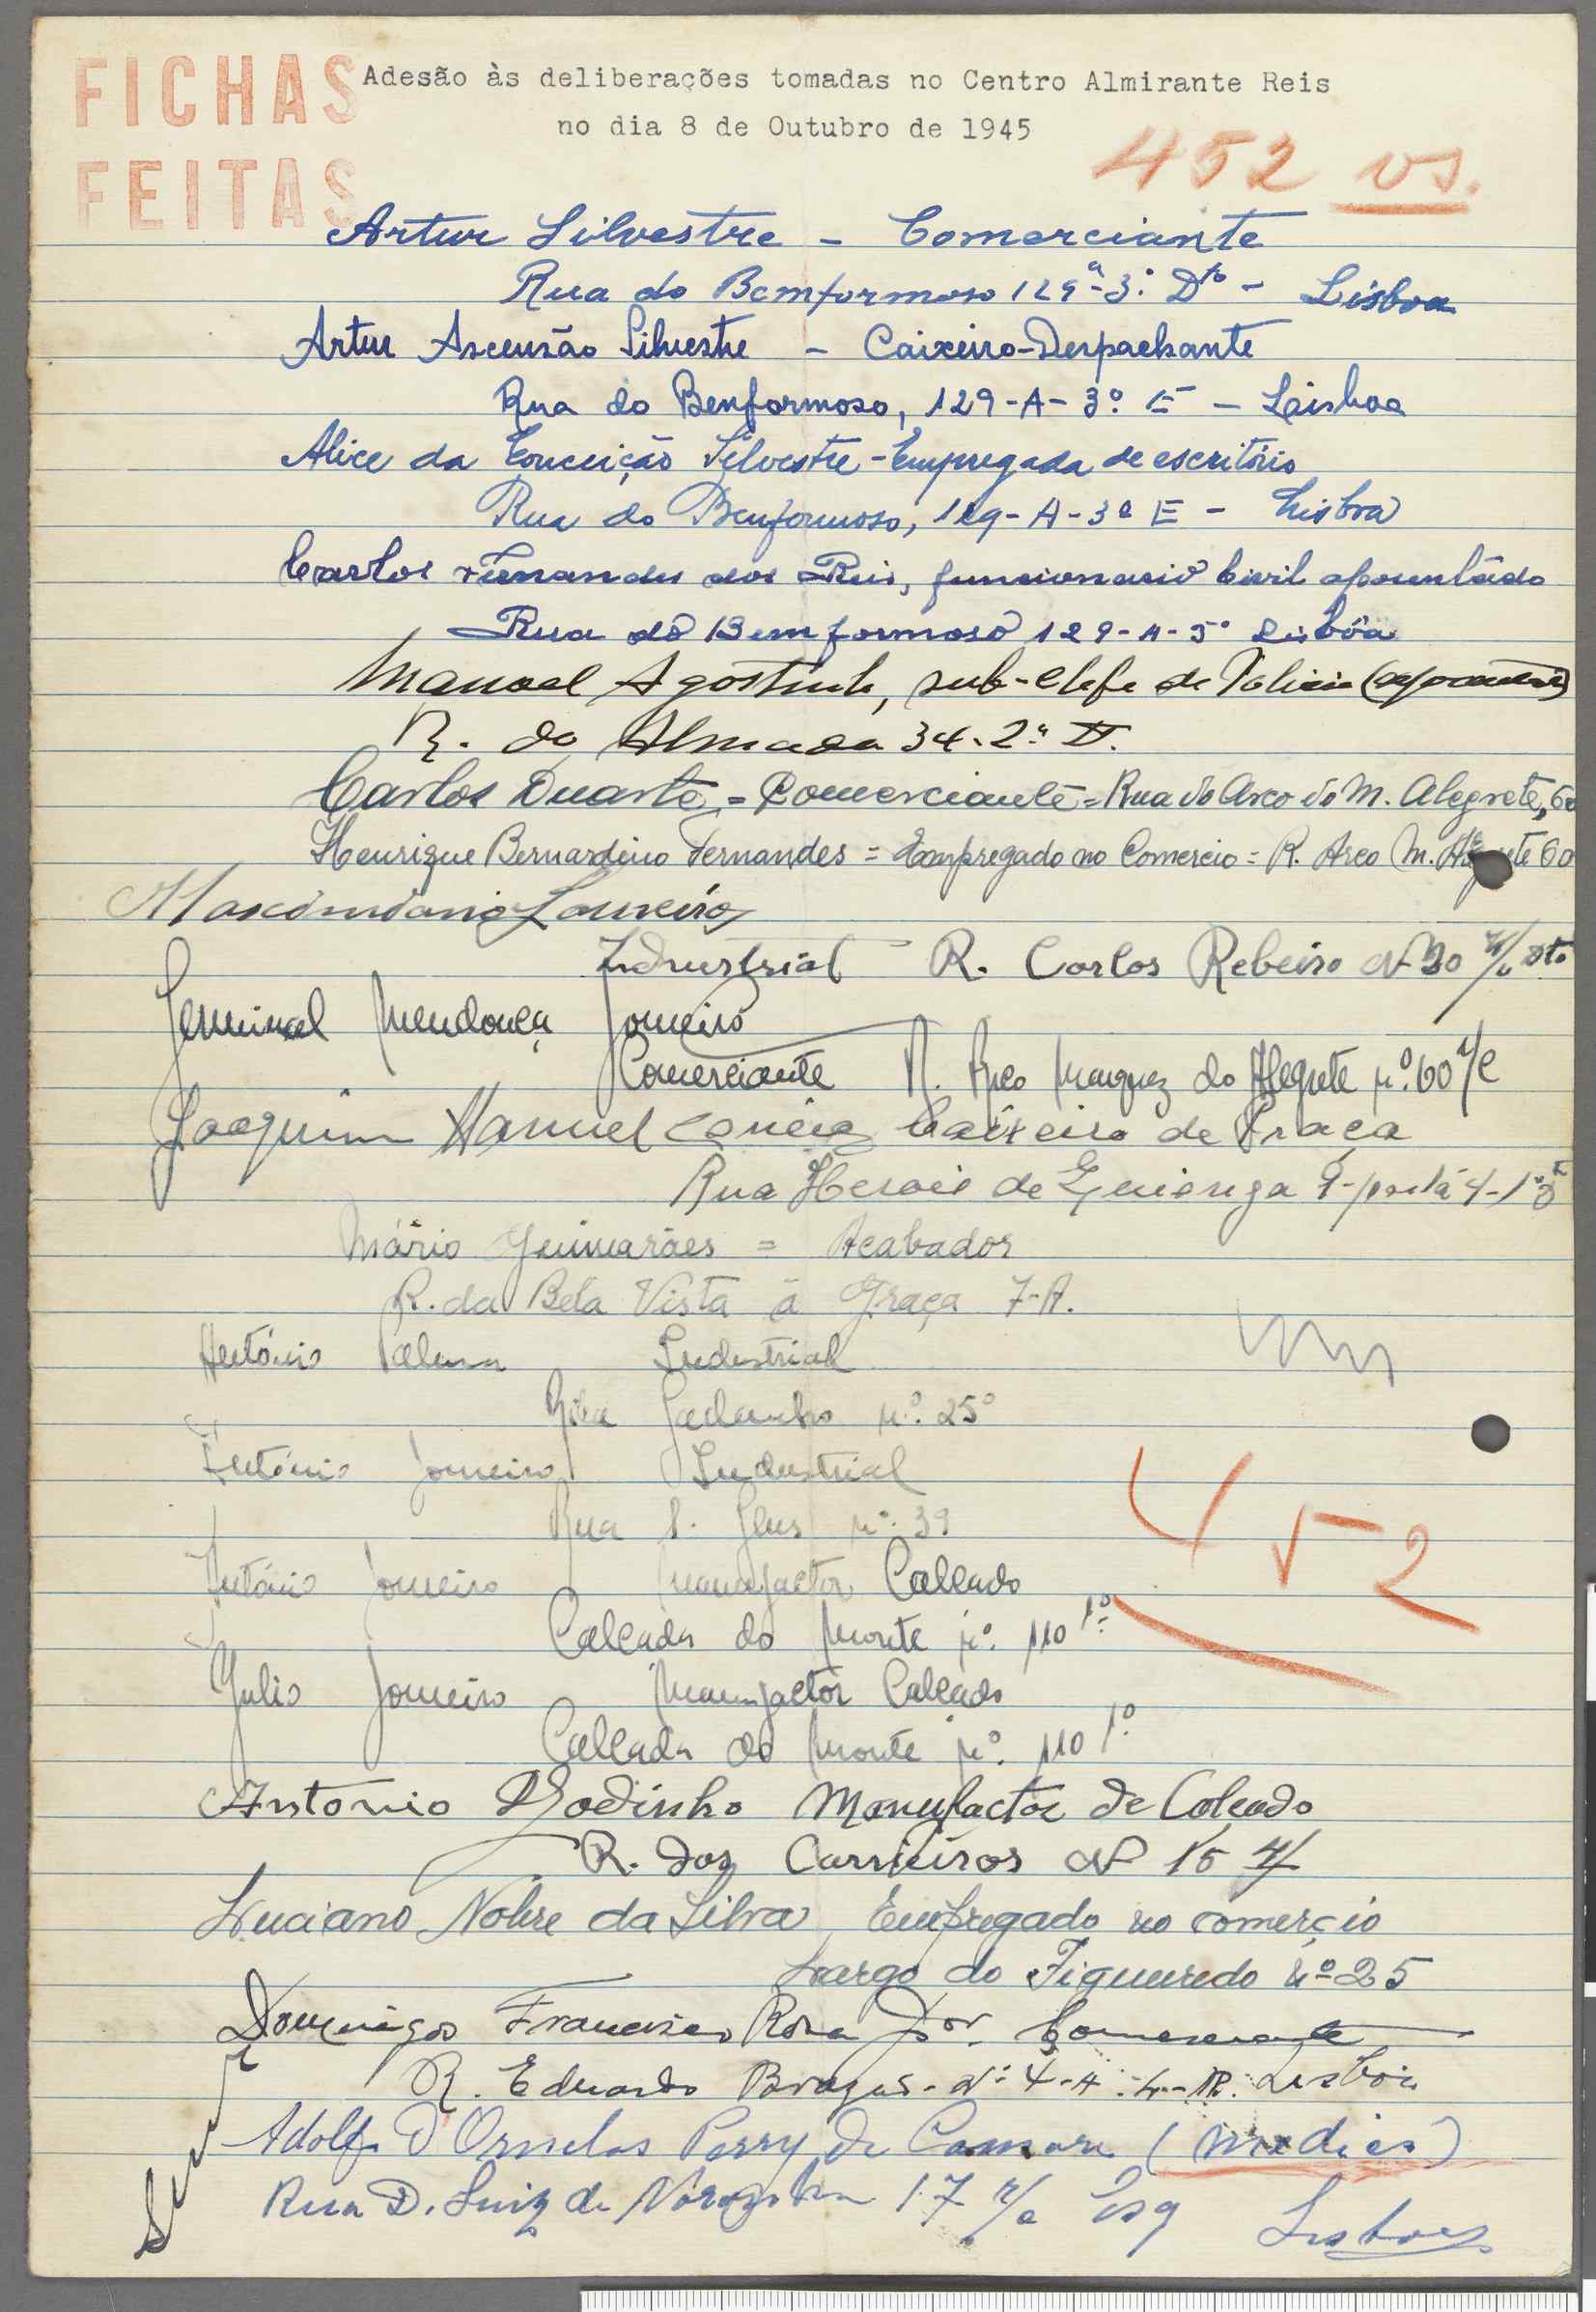 FICHAS
FEITAS
Adesão às deliberações tomadas no Centro Almirante Reis
no dia 8 de Outubro de 1945
452 vs.
Artur Silvestre - Comerciante
Rua do Bemformoso 129ª-3º Dto - Lisboa
Artur Ascensão Silvestre - Caixeiro-Despachante
Rua do Benformoso, 129-A-3º E - Lisboa
Alice da Conceição Silvestre - Empregada de escritório
Rua do Benformoso, 129-A-3º E - Lisboa
Carlos Fernandes dos Reis, funcionario Civil aposentádo
Rua do Bemformoso 129-A-5º Lisbôa
Manoel Agostinho, sub-chefe de Policia
R. do Almada 34-2º D.
Carlos Duarte = Comerciante = Rua do Arco do M. Alegrete, 60
Henrique Bernardino Fernandes = Empregado no Comercio = R. Arco M. Alegrete 60
Maximiano Loureiro
Industrial R. Carlos Rebeiro Nº 30 r/c Dto
Germinal Mendonça Joneiro
Comerciante R. Arco Marquez do Alegrete nº. 60 r/c
Joaquim Manuel Caixeiro de Praça
Rua Herois de Quionga 9-porta 4-1º
Mário Guimarães = Acabador
R. da Bela Vista á Graça 7-A.
António Palma Industrial
Rua Jardim nº. 25
António Joneiro Industrial
Rua S. nº. 39
António Joneiro Manufactor Calcado
Calcada do Monte nº. 110 1º
Julio Joneiro Manufactor Calcado
Calcada do Monte nº. 110 1º
452
Antonio Godinho Manufactor de Calcado
R. dos Carrieiros Nº 15 r/
Luciano Nobre da Silva Empregado no comerçio
Largo do Figueiredo nº 25
Domingos Francisco Rosa Jor. Comerciante
R. Eduardo Brazão - Nº 4-A Lisboa
Adolfo D'Ornelas Perry da Camara (medico)
Rua D. Luiz de Noronha 17 r/c Esq Lisboa